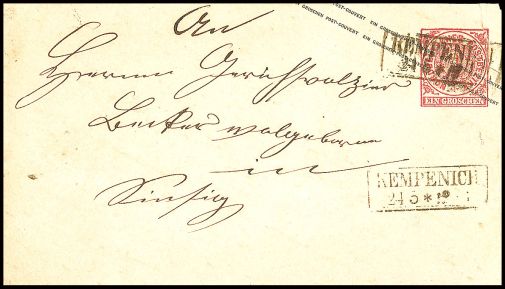 EIN GROSCHEN POST-COUVERT EIN GROSCHEN POST-COUVERT EIN GROSCHEN
An
KEMPENICH
Herrn Gerichtvolzier
EIN GROSCHEN
Becker wolgeboren
in
KEMPENICH
24 5 *
Sinzig